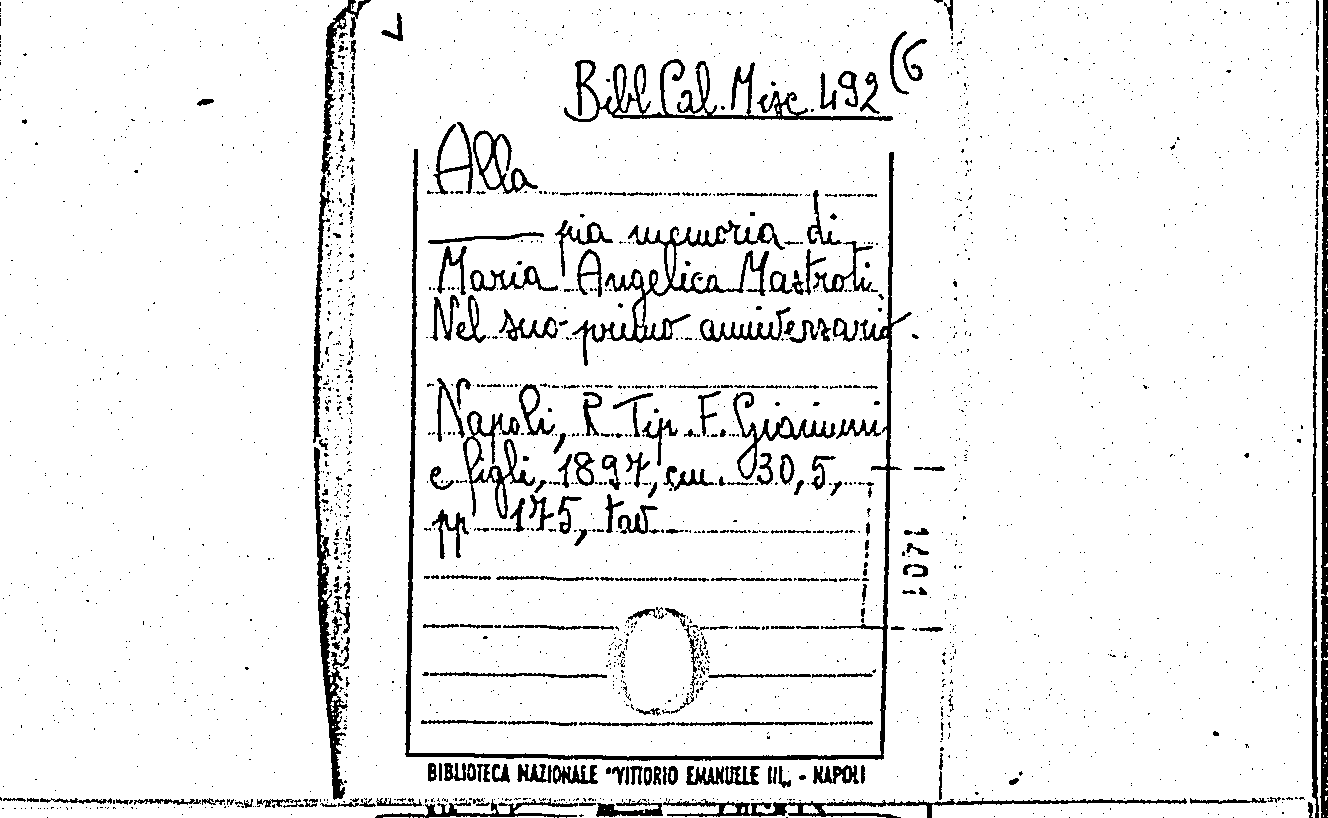 Bibl. Cal. Misc. 492 (6
Alla
——— pia memoria di
Maria Angelica Mastroti.
Nel suo primo anniversario.
Napoli, R. Tip. F. Giannini
e figli, 1897, cm. 30,5,
pp 175, tav.
1401
BIBLIOTECA NAZIONALE "VITTORIO EMANUELE III„ - NAPOLI